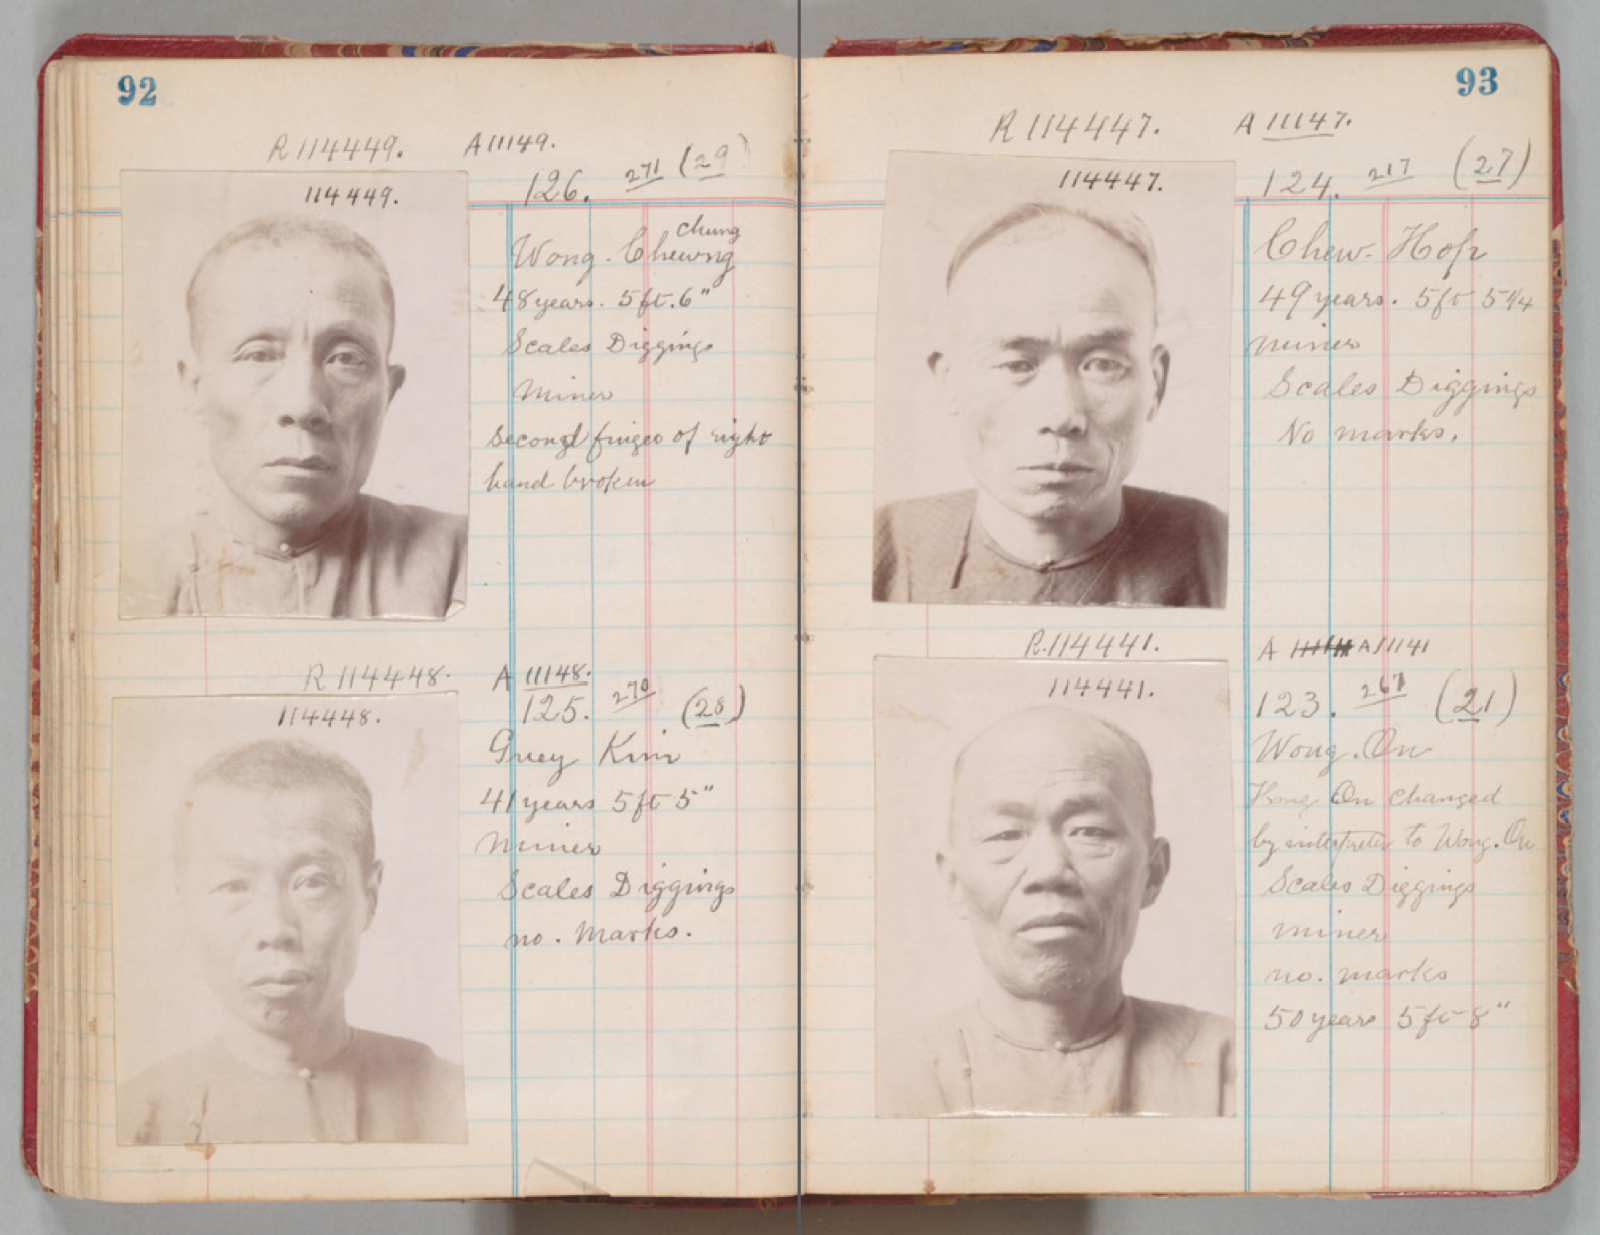 92
R 114449. A 11149.
114449.
126. 271 (29)
chung
Wong. Cheung
48 years. 5 ft. 6"
Scales Diggings
Miner
Second finger of right
hand broken
R 114448. A 11148.
114448.
125. 270 (28)
Guey Kim
41 years 5 ft 5"
Miner
Scales Diggings
no. Marks.
93
R 114447. A 11147.
114447.
124. 217 (27)
Chew. Hop
49 years. 5 ft 5 1/4
Miner
Scales Diggings
No marks.
R.114441. A A11141
114441.
123. 267 (21)
Wong. On
Hong On changed
by interpreter to Wong. On
Scales Diggings
miner
no. marks
50 years 5 ft 8"